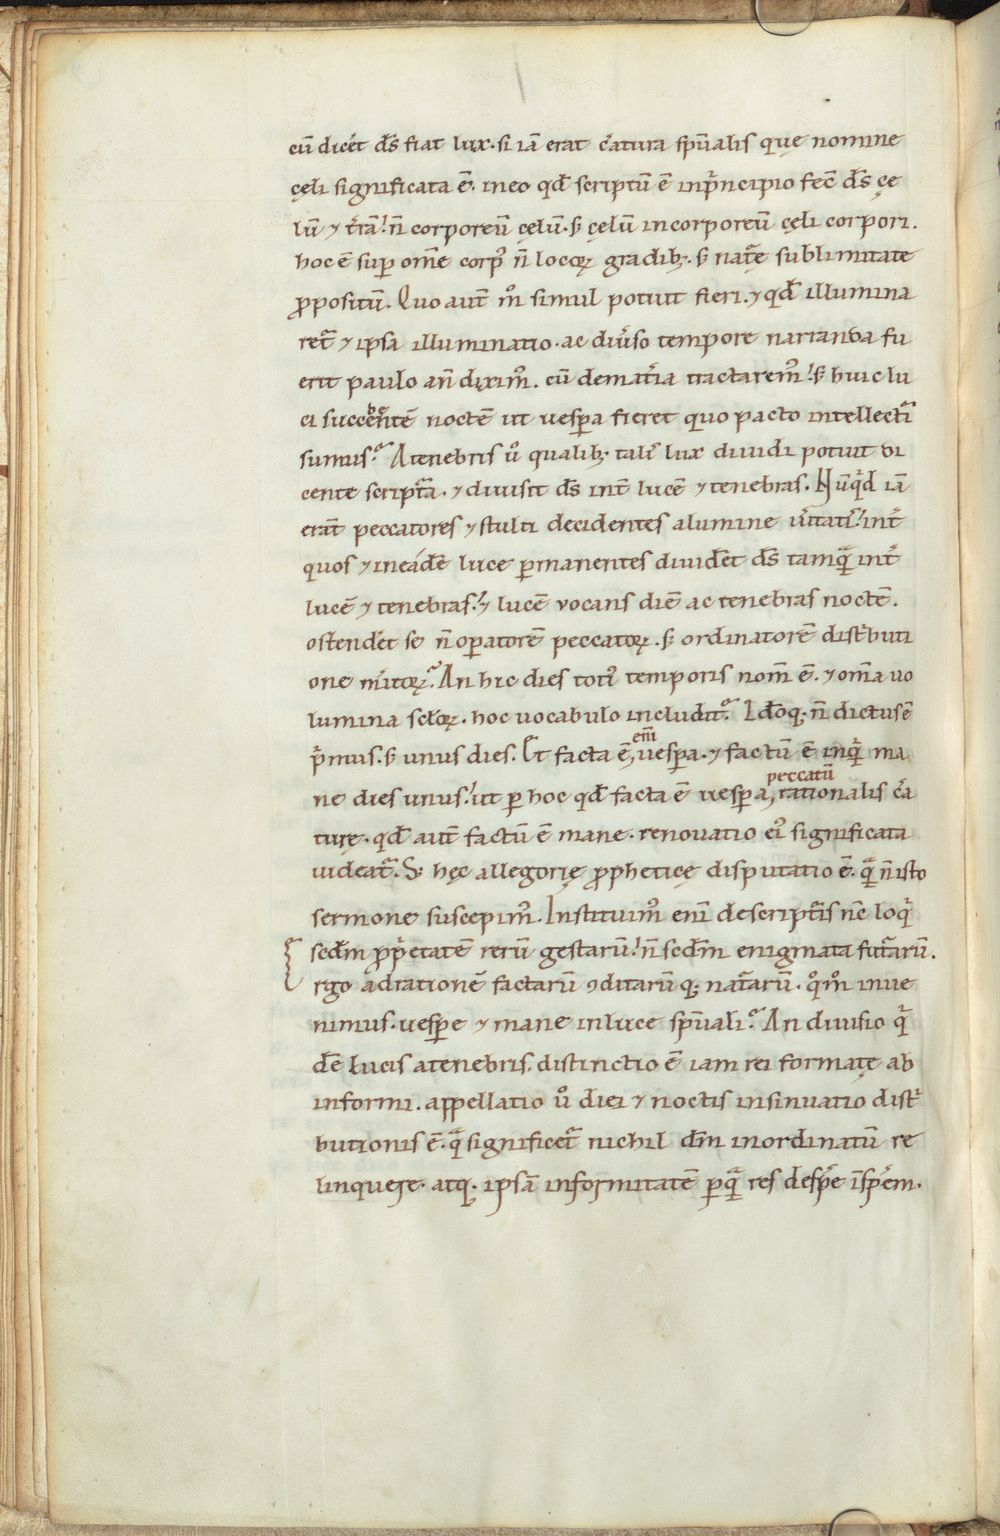 cū dicēt d̄s fiat lux. si iā erat c̄atura sp̄ualis quę nomine
cęli significata ē. in eo qđ scriptū ē in p̄ncipio fec̄ d̄s cę
lū ⁊ t̄rā! n̄ corporeū cęlū. ꝫ cęlū incorporeū cęli corpori.
hoc ē sup om̄e corp᾿ n̄ locoꝝ gradibꝫ. ꝫ nat̄ę sublimitate
ꝓpositū. Quo aut̄ m̊ simul potuit fieri. ⁊ qđ illumina
ret᷑ ⁊ ipsa illuminatio. ac diūso tempore narranda fu
erit paulo an̄ dixim᾿. cū de mat̄ia tractarem᾿! ꝫ huic lu
ci succentē noctē ut uesꝑa fieret quo pacto intellecti
sumus? A tenebris ů qualibꝫ tali lux diuidi potuit di
cente script̄a. ⁊ diuisit d̄s int̄ lucē ⁊ tenebras. Nūq̇d iā
erāt peccatores ⁊ stulti decidentes a lumine ūitatis! int̄
quos ⁊ in eádē luce ꝑmanentes diuidet̄ d̄s tamq̄ int̄
lucē ⁊ tenebras! ⁊ lucē vocans diē ac tenebras noctē.
ostendēt se n̄ oꝑatorē peccatoꝝ. ꝫ ordinatorē dist̄buti
one m̄itoꝝ? An hic dies toti᾿ temporis nom̄ ē. ⁊ om̄a uo
lumina sc̄loꝝ. hoc uocabulo includit? Idoq. n̄ dictus ē
p̄mus. ꝫ unus dies. Et facta ē, uesꝑa. ⁊ factū ē inq̇t ma
enī
ne dies unus! ut ꝑ hoc qđ facta ē uesꝑa, rationalis c̄a
peccatū
turę. qđ aut̄ factū ē mane. renovatio ei᾿ significata
uideat᷑. Sꝫ hęc allegorię ꝓphetice̜ disputatio ē. q̄ n̄ isto
sermone suscepim᾿. Instituim᾿ enī de script̄is nc̄ loq̇
scdm ꝓp̄etatē rerū gestarū! n̄ scdm enigmata fut̄arū.
rgo ad rationē factarū ꝯditarū q; nat̄arū. q̊m̊ inue
nimus. uesꝑe ⁊ mane in luce sp̄uali? An diuisio q̇
dē lucis a tenebris. distinctio ē iam rei formatę ab
informi. appellatio ů diei ⁊ noctis insinuatio dist̄
butionis ē. q̄ significet᷑ nichil dm̄ inordinatū re
linquere. atq. ipsā informitatē ꝑ q̄ res de spē ī spēm.